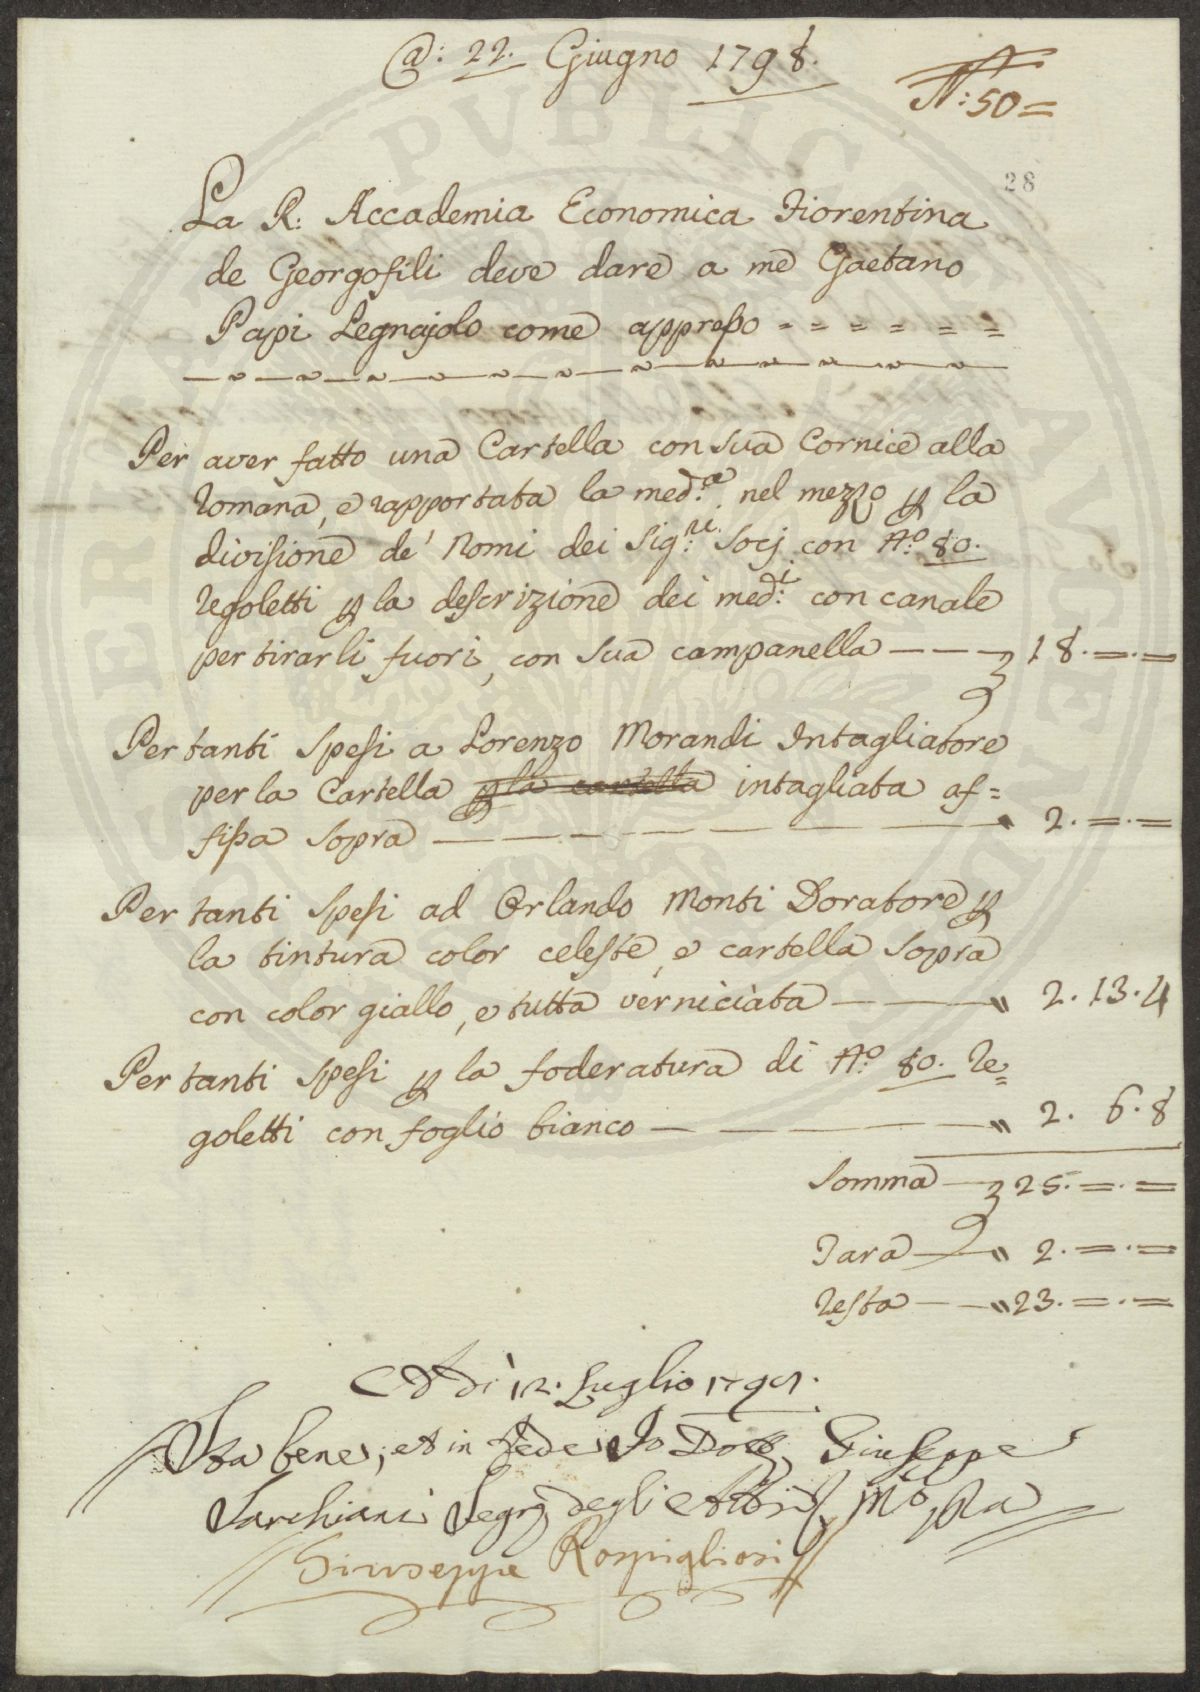 @: 22. Giugno 1798.
N: 50 =
28
La R: Accademia Economica Fiorentina
de Georgofili deve dare a me Gaetano
Papi Legnajolo come appresso = = = = = = =
Per aver fatto una Cartella con sua Cornice alla
romana, e rapportata la med.a nel mezzo p la
divisione de' Nomi dei Sig:ri Socj con N.o 80.
regoletti p la descrizione dei med:i con canale
per tirarli fuori, con sua campanella — — — 18. = . =
Per tanti spesi a Lorenzo Morandi Intagliatore
per la Cartella p la cartella intagliata af=
fissa sopra — — — — — — — 2. = . =
Per tanti spesi ad Orlando Monti Doratore p
la tintura color celeste, e cartella sopra
con color giallo, e tutta verniciata — — „ 2. 13. 4
Per tanti spesi p la foderatura di N.o 80. re=
goletti con foglio bianco — — — — „ 2. 6. 8
Somma — 25. = . =
Tara — „ 2. = . =
resta — — „ 23. = . =
A dì 12. Luglio 1798.
Sta bene, et in fede Io Dott. Giuseppe
Sarchiani Segr. degli Atti
Giuseppe Rospigliosi